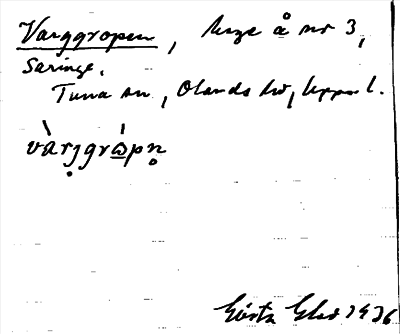 Varggropen, hage å nr 3,
Saringe.
Tuna sn, Olands hd, Uppsl.
vàrjgrópn
Gösta 1936